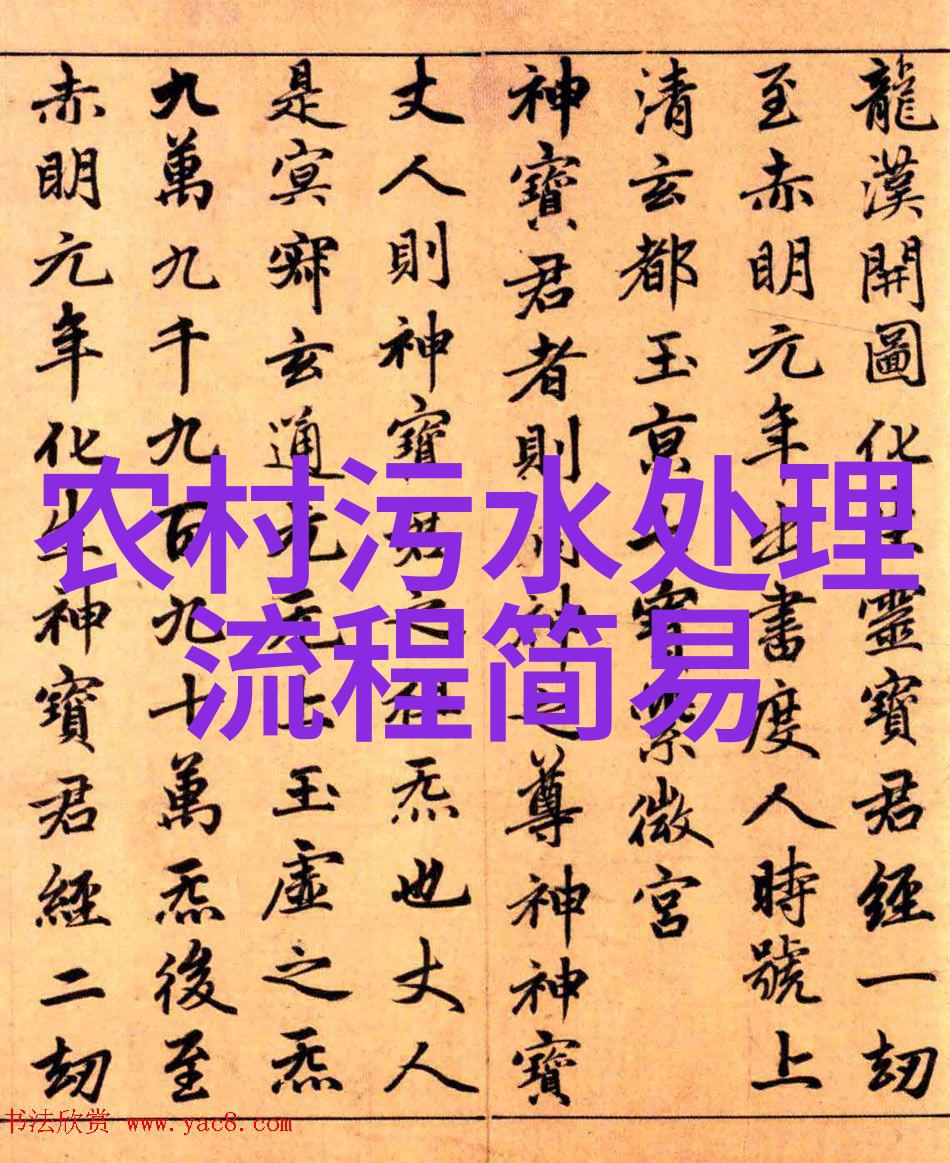 龍漢開圖化生靈寶君經一刧
至赤明元年出書度人時號上
清玄都玉京七寶紫微宮
神寶君者則洞神之尊神神寶
丈人則神寶君之祖炁也丈人
是冥寂玄通元无上玉虛之炁
九萬九千九百九十萬炁後至
赤明元年化生神寶君經二刧
农村污水处理
流程简易
书法欣赏 www.yac8.com